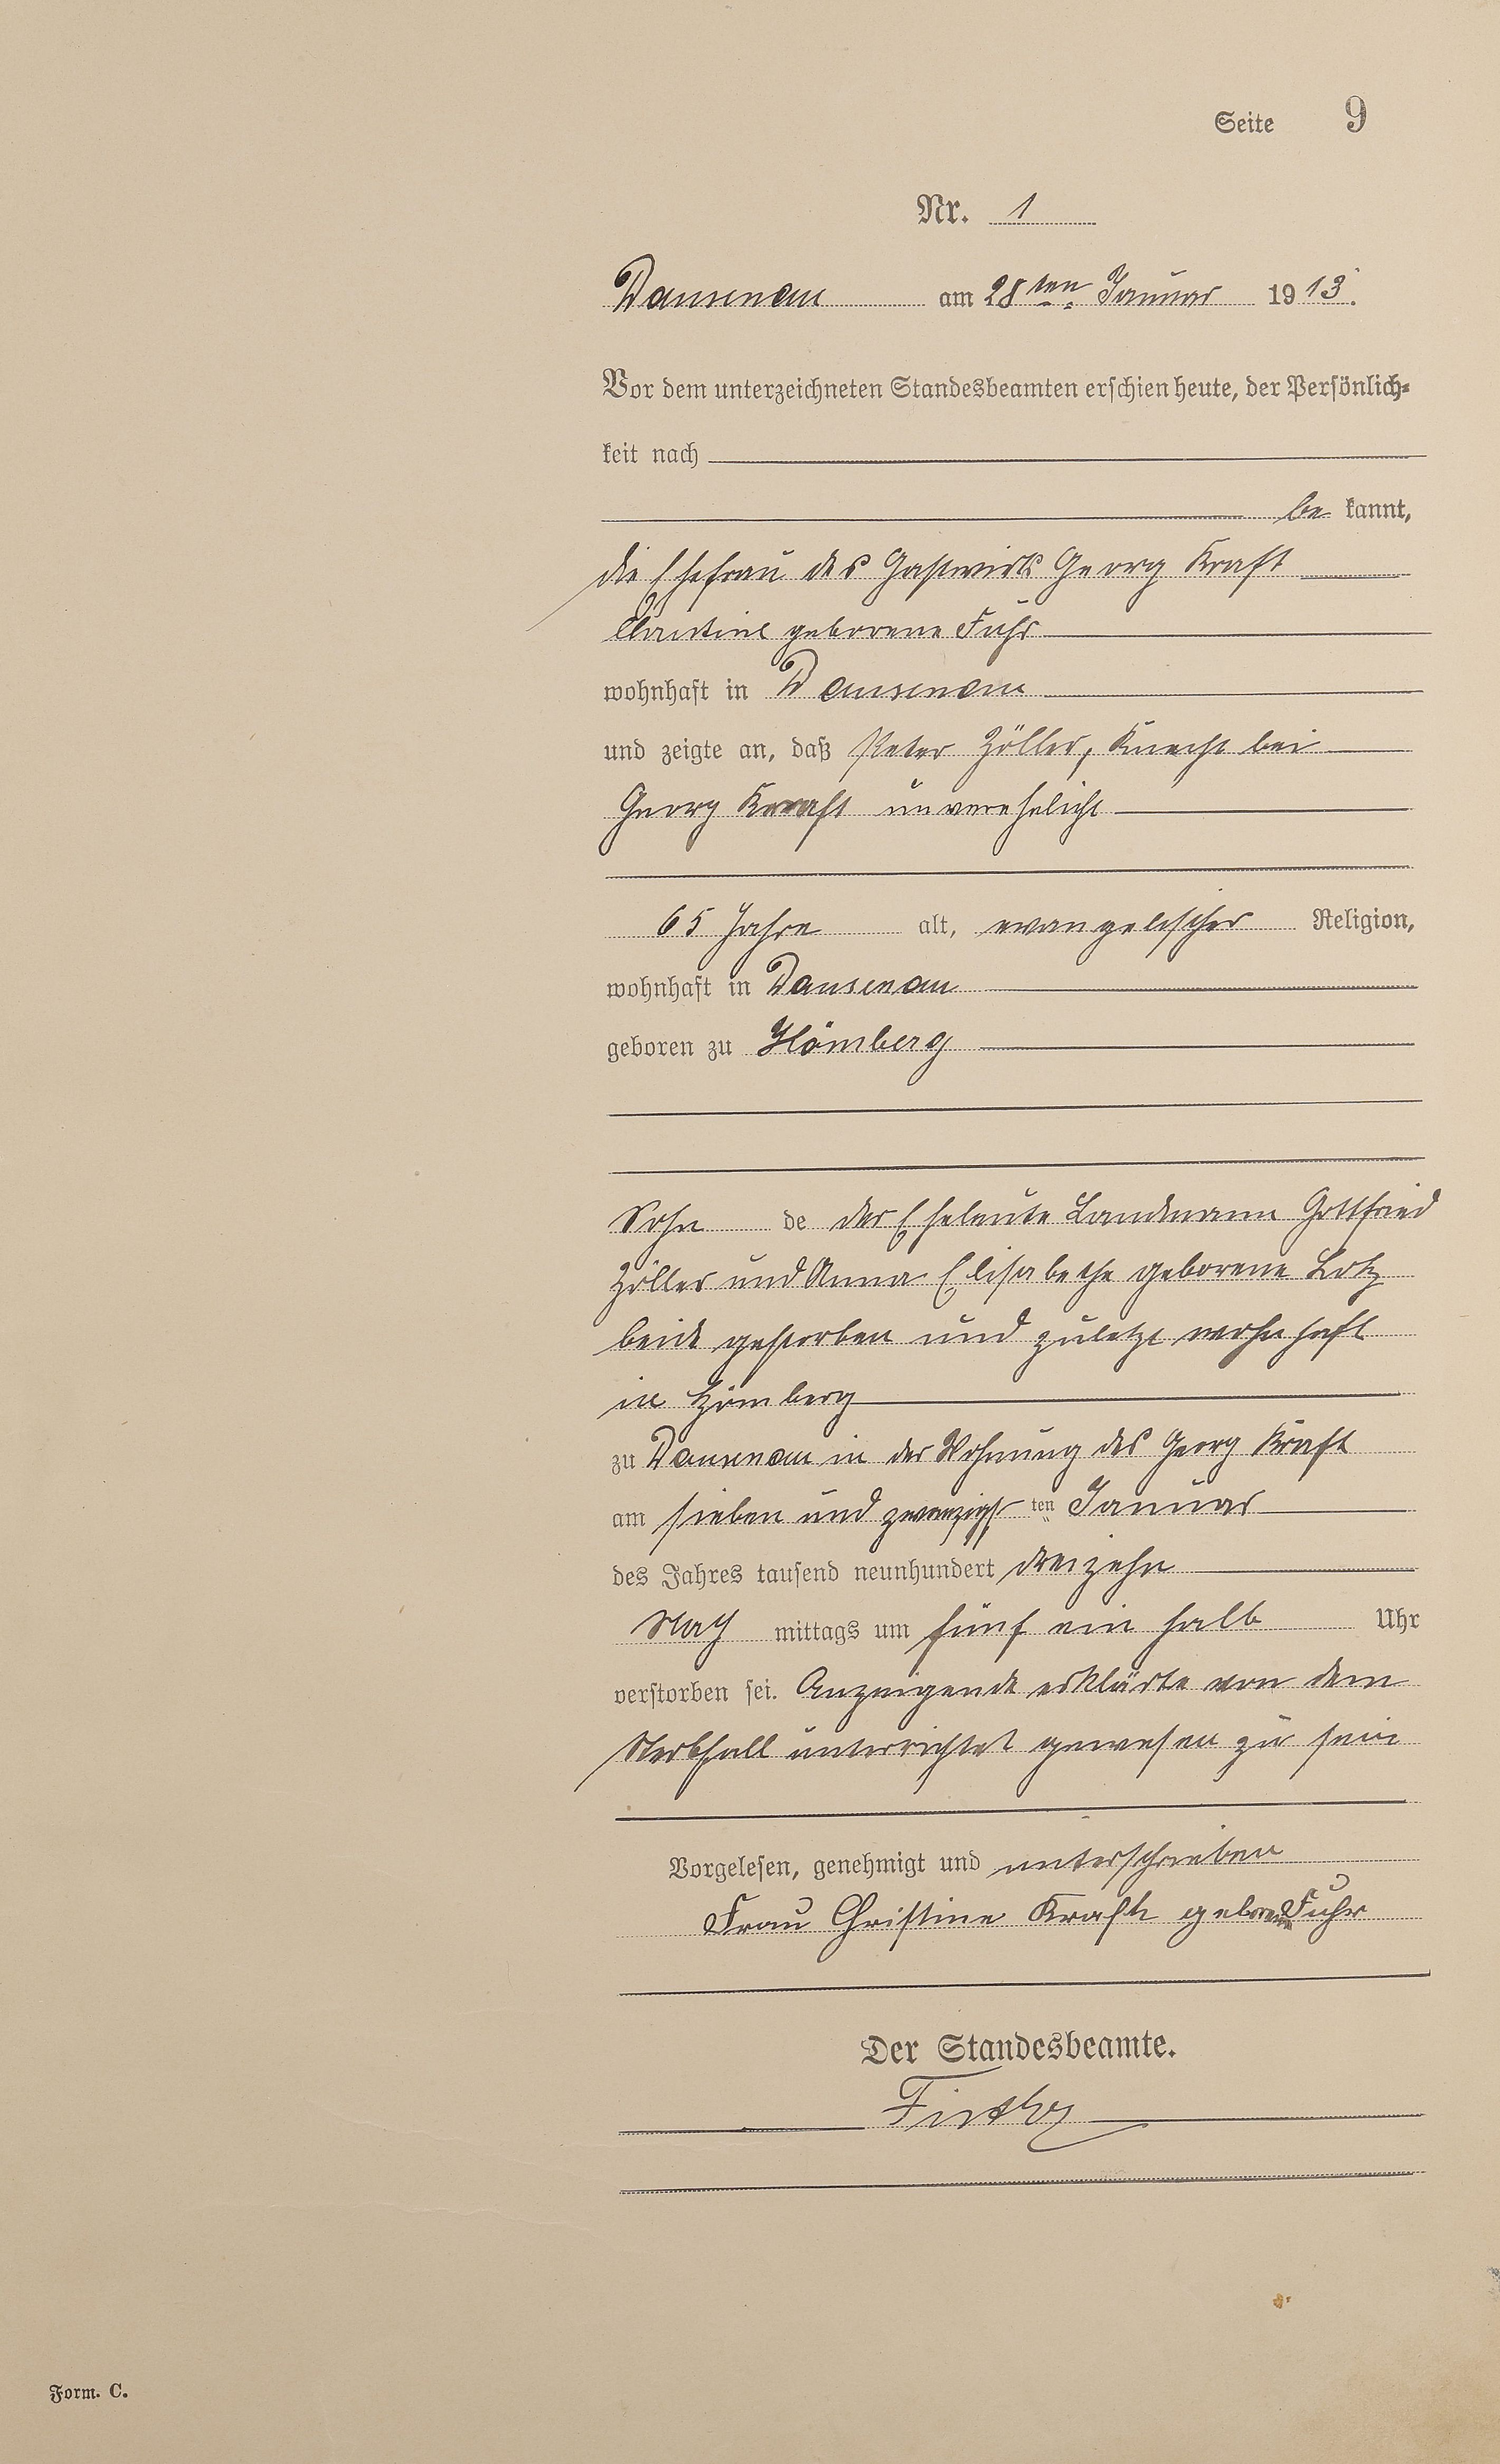 Seite 9
Nr. 1
Dausenau am 28ten Januar 1913.
Vor dem unterzeichneten Standesbeamten erschien heute, der Persönlich=
keit nach
be kannt,
die Ehefrau des Gastwirts Georg Kraft
geborene Fuhr
wohnhaft in Dausenau
und zeigte an, daß Peter Zöller, Knecht bei
Georg Kraft unverehelicht
65 Jahre alt, evangelischer Religion,
wohnhaft in Dausenau
geboren zu Hömberg
Sohn de der Eheleute Landmann Gottfried
Zöller und Anna Elisabethe geborene Lotz
beide gestorben und zuletzt wohnhaft
in Hömberg
zu Dausenau in der Wohnung des Georg Kraft
am sieben und zwanzigsten Januar
des Jahres tausend neunhundert dreizehn
Nach mittags um fünf ein halb Uhr
verstorben sei. Anzeigende erklärte von dem
Sterbfall unterrichtet gewesen zu sein
Vorgelesen, genehmigt und unterschrieben
Frau Christine Kraft geborene Fuhr
Der Standesbeamte.
Form. C.